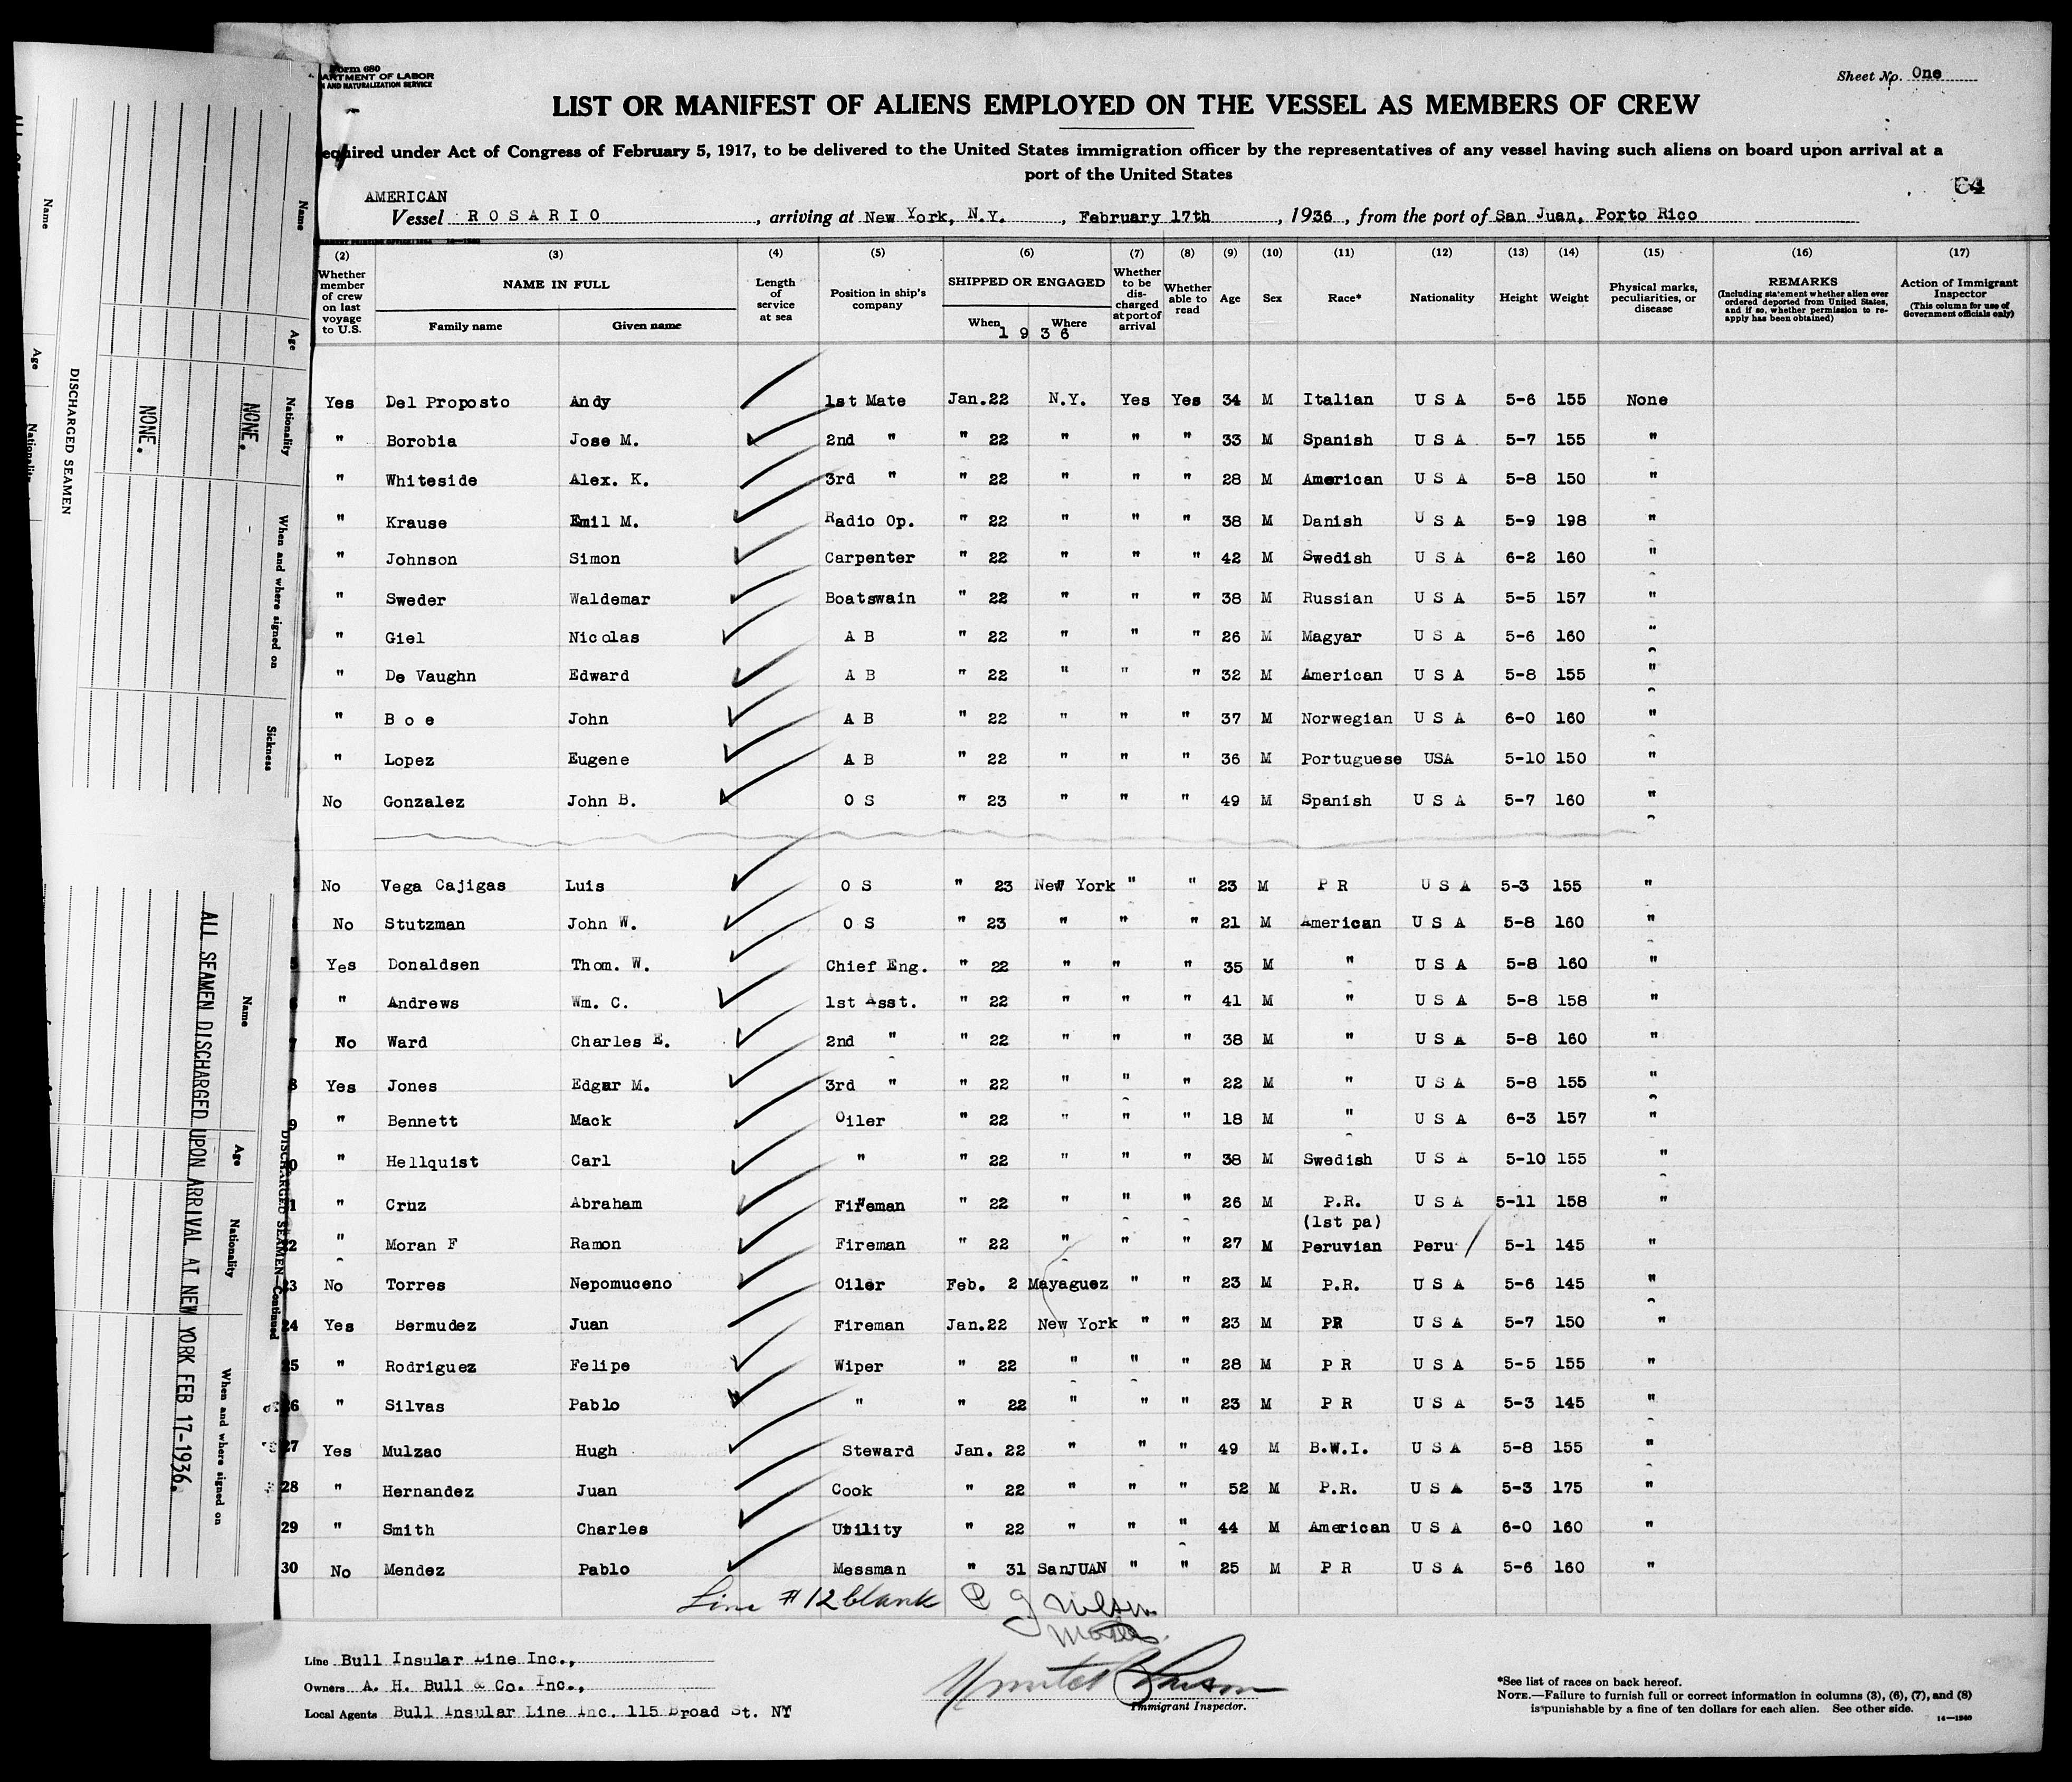 Form 680
ARTMENT OF LABOR
AND NATURALIZATION SERVICE
Sheet No. One
LIST OR MANIFEST OF ALIENS EMPLOYED ON THE VESSEL AS MEMBERS OF CREW
equired under Act of Congress of February 5, 1917, to be delivered to the United States immigration officer by the representatives of any vessel having such aliens on board upon arrival at a
port of the United States
64
AMERICAN
Vessel ROSARIO, arriving at New York, N.Y., February 17th, 1936, from the port of San Juan, Porto Rico
(2) (3) (4) (5) (6) (7) (8) (9) (10) (11) (12) (13) (14) (15) (16) (17)
Whether member of crew on last voyage to U.S. NAME IN FULL Family name Given name Length of service at sea Position in ship's company SHIPPED OR ENGAGED When Where 1936 Whether to be discharged at port of arrival Whether able to read Age Sex Race* Nationality Height Weight Physical marks, peculiarities, or disease REMARKS (Including statement whether alien ever ordered deported from United States, and if so, whether permission to re-apply has been obtained) Action of Immigrant Inspector (This column for use of Government officials only)
Yes Del Proposto Andy 1st Mate Jan.22 N.Y. Yes Yes 34 M Italian U S A 5-6 155 None
" Borobia Jose M. 2nd " " 22 " " " 33 M Spanish U S A 5-7 155 "
" Whiteside Alex. K. 3rd " " 22 " " " 28 M American U S A 5-8 150 "
" Krause Emil M. Radio Op. " 22 " " " 38 M Danish U S A 5-9 198 "
" Johnson Simon Carpenter " 22 " " " 42 M Swedish U S A 6-2 160 "
" Sweder Waldemar Boatswain " 22 " " " 38 M Russian U S A 5-5 157 "
" Giel Nicolas A B " 22 " " " 26 M Magyar U S A 5-6 160 "
" De Vaughn Edward A B " 22 " " " 32 M American U S A 5-8 155 "
" B o e John A B " 22 " " " 37 M Norwegian U S A 6-0 160 "
" Lopez Eugene A B " 22 " " " 36 M Portuguese USA 5-10 150 "
No Gonzalez John B. O S " 23 " " " 49 M Spanish U S A 5-7 160 "
No Vega Cajigas Luis O S " 23 New York " " 23 M P R U S A 5-3 155 "
No Stutzman John W. O S " 23 " " " 21 M American U S A 5-8 160 "
5 Yes Donaldsen Thom. W. Chief Eng. " 22 " " " 35 M " U S A 5-8 160 "
6 " Andrews Wm. C. 1st Asst. " 22 " " " 41 M " U S A 5-8 158 "
7 No Ward Charles E. 2nd " " 22 " " " 38 M " U S A 5-8 160 "
8 Yes Jones Edgar M. 3rd " " 22 " " " 22 M " U S A 5-8 155 "
9 " Bennett Mack Oiler " 22 " " " 18 M " U S A 6-3 157 "
0 " Hellquist Carl " " 22 " " " 38 M Swedish U S A 5-10 155 "
1 " Cruz Abraham Fireman " 22 " " " 26 M P.R. U S A 5-11 158 "
(1st pa)
2 " Moran F Ramon Fireman " 22 " " " 27 M Peruvian Peru 5-1 145 "
23 No Torres Nepomuceno Oiler Feb. 2 Mayaguez " " 23 M P.R. U S A 5-6 145 "
24 Yes Bermudez Juan Fireman Jan.22 New York " " 23 M PR U S A 5-7 150 "
25 " Rodriguez Felipe Wiper " 22 " " " 28 M P R U S A 5-5 155 "
26 " Silvas Pablo " " 22 " " " 23 M P R U S A 5-3 145 "
27 Yes Mulzac Hugh Steward Jan. 22 " " " 49 M B.W.I. U S A 5-8 155 "
28 " Hernandez Juan Cook " 22 " " " 52 M P.R. U S A 5-3 175 "
29 " Smith Charles Utility " 22 " " " 44 M American U S A 6-0 160 "
30 No Mendez Pablo Messman " 31 SanJUAN " " 25 M P R U S A 5-6 160 "
Line #12 blank
Line Bull Insular Line Inc.,
Owners A. H. Bull & Co. Inc.,
Local Agents Bull Insular Line Inc. 115 Broad St. NY
Immigrant Inspector.
*See list of races on back hereof.
NOTE.—Failure to furnish full or correct information in columns (3), (6), (7), and (8)
is punishable by a fine of ten dollars for each alien. See other side.
14—1240
Name Age Nationality When and where signed on Sickness
NONE.
NONE.
DISCHARGED SEAMEN
Name Age
DISCHARGED SEAMEN—Continued
Name Age Nationality When and where signed on
ALL SEAMEN DISCHARGED UPON ARRIVAL AT NEW YORK FEB 17-1936.